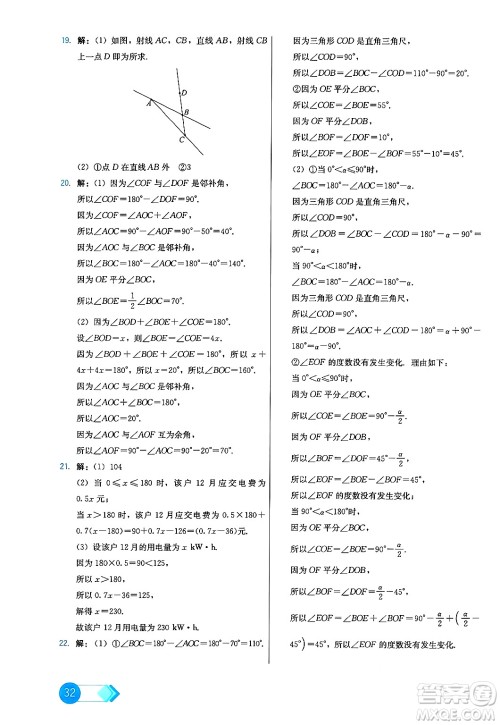 19. 解：(1)如图，射线 AC，CB，直线 AB，射线 CB
上一点 D 即为所求.
D
A
B
C
(2)①点 D 在直线 AB 外　②3
20. 解：(1)因为∠COF 与∠DOF 是邻补角，
所以∠COF=180°-∠DOF=90°.
因为∠COF=∠AOC+∠AOF，
所以∠AOC=90°-50°=40°.
因为∠AOC 与∠BOC 是邻补角，
所以∠BOC=180°-40°=140°.
因为 OE 平分∠BOC，
所以∠BOE=1/2∠BOC=70°.
(2)因为∠BOD+∠BOE+∠EOC=180°，
设∠BOD=x，则∠BOE=4x，
所以 x+4x+4x=180°，所以 x=20°，
所以∠AOC=20°.
因为∠AOC 与∠AOF 互为余角，
所以∠AOF=90°-∠AOC=70°.
21. 解：(1)104
(2)当 0≤x≤180 时，该户 12 月应交电费为
0.5x 元；
当 x>180 时，该户 12 月应交电费为 0.5×180+
0.7(x-180)=90+0.7x-126=(0.7x-36)元.
(3)设该户 12 月的用电量为 x kW·h.
因为 180×0.5=90<125，
所以 x>180，
所以 0.7x-36=125，
解得 x=230.
故该户 12 月的用电量为 230 kW·h.
22. 解：(1)①∠BOC=180°-70°=110°.
32
因为三角形 COD 是直角三角尺，
所以∠COD=90°，
所以∠DOB=∠BOC-∠COD=110°-90°=20°.
②因为 OE 平分∠BOC，
所以∠BOE=∠COE=55°.
因为 OF 平分∠BOD，
所以∠BOF=∠DOF=10°，
所以∠EOF=∠BOE-∠BOF=55°-10°=45°.
(2)①当 0°<α≤90°时，
∠BOC=180°-∠AOC=180°-α.
因为三角形 COD 是直角三角尺，
所以∠COD=90°，
所以∠DOB=∠BOC-∠COD=180°-α-90°=
90°-α；
当 90°<α<180°时，
∠BOC=180°-∠AOC=180°-α.
因为三角形 COD 是直角三角尺，
所以∠COD=90°，
所以∠DOB=∠COD-∠BOC=α-90°.
②∠EOF 的度数没有发生变化. 理由如下：
当 0°<α≤90°时，
因为 OE 平分∠BOC，
所以∠COE=∠BOE=90°-α/2.
因为 OF 平分∠BOD，
所以∠BOF=∠DOF=45°-α/2，
所以∠EOF=∠BOE-∠BOF=45°，
所以∠EOF 的度数没有发生变化；
当 90°<α<180°时，
因为 OE 平分∠BOC，
所以∠COE=∠BOE=90°-α/2.
因为 OF 平分∠BOD，
所以∠BOF=∠DOF=α/2-45°，
所以∠EOF=∠BOE+∠BOF=90°-α/2+(α/2-
45°)=45°，所以∠EOF 的度数没有发生变化.